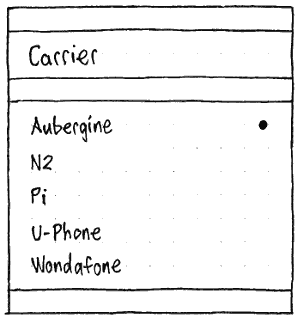 Carrier
Aubergine
N2
Pi
U-Phone
Wondafone